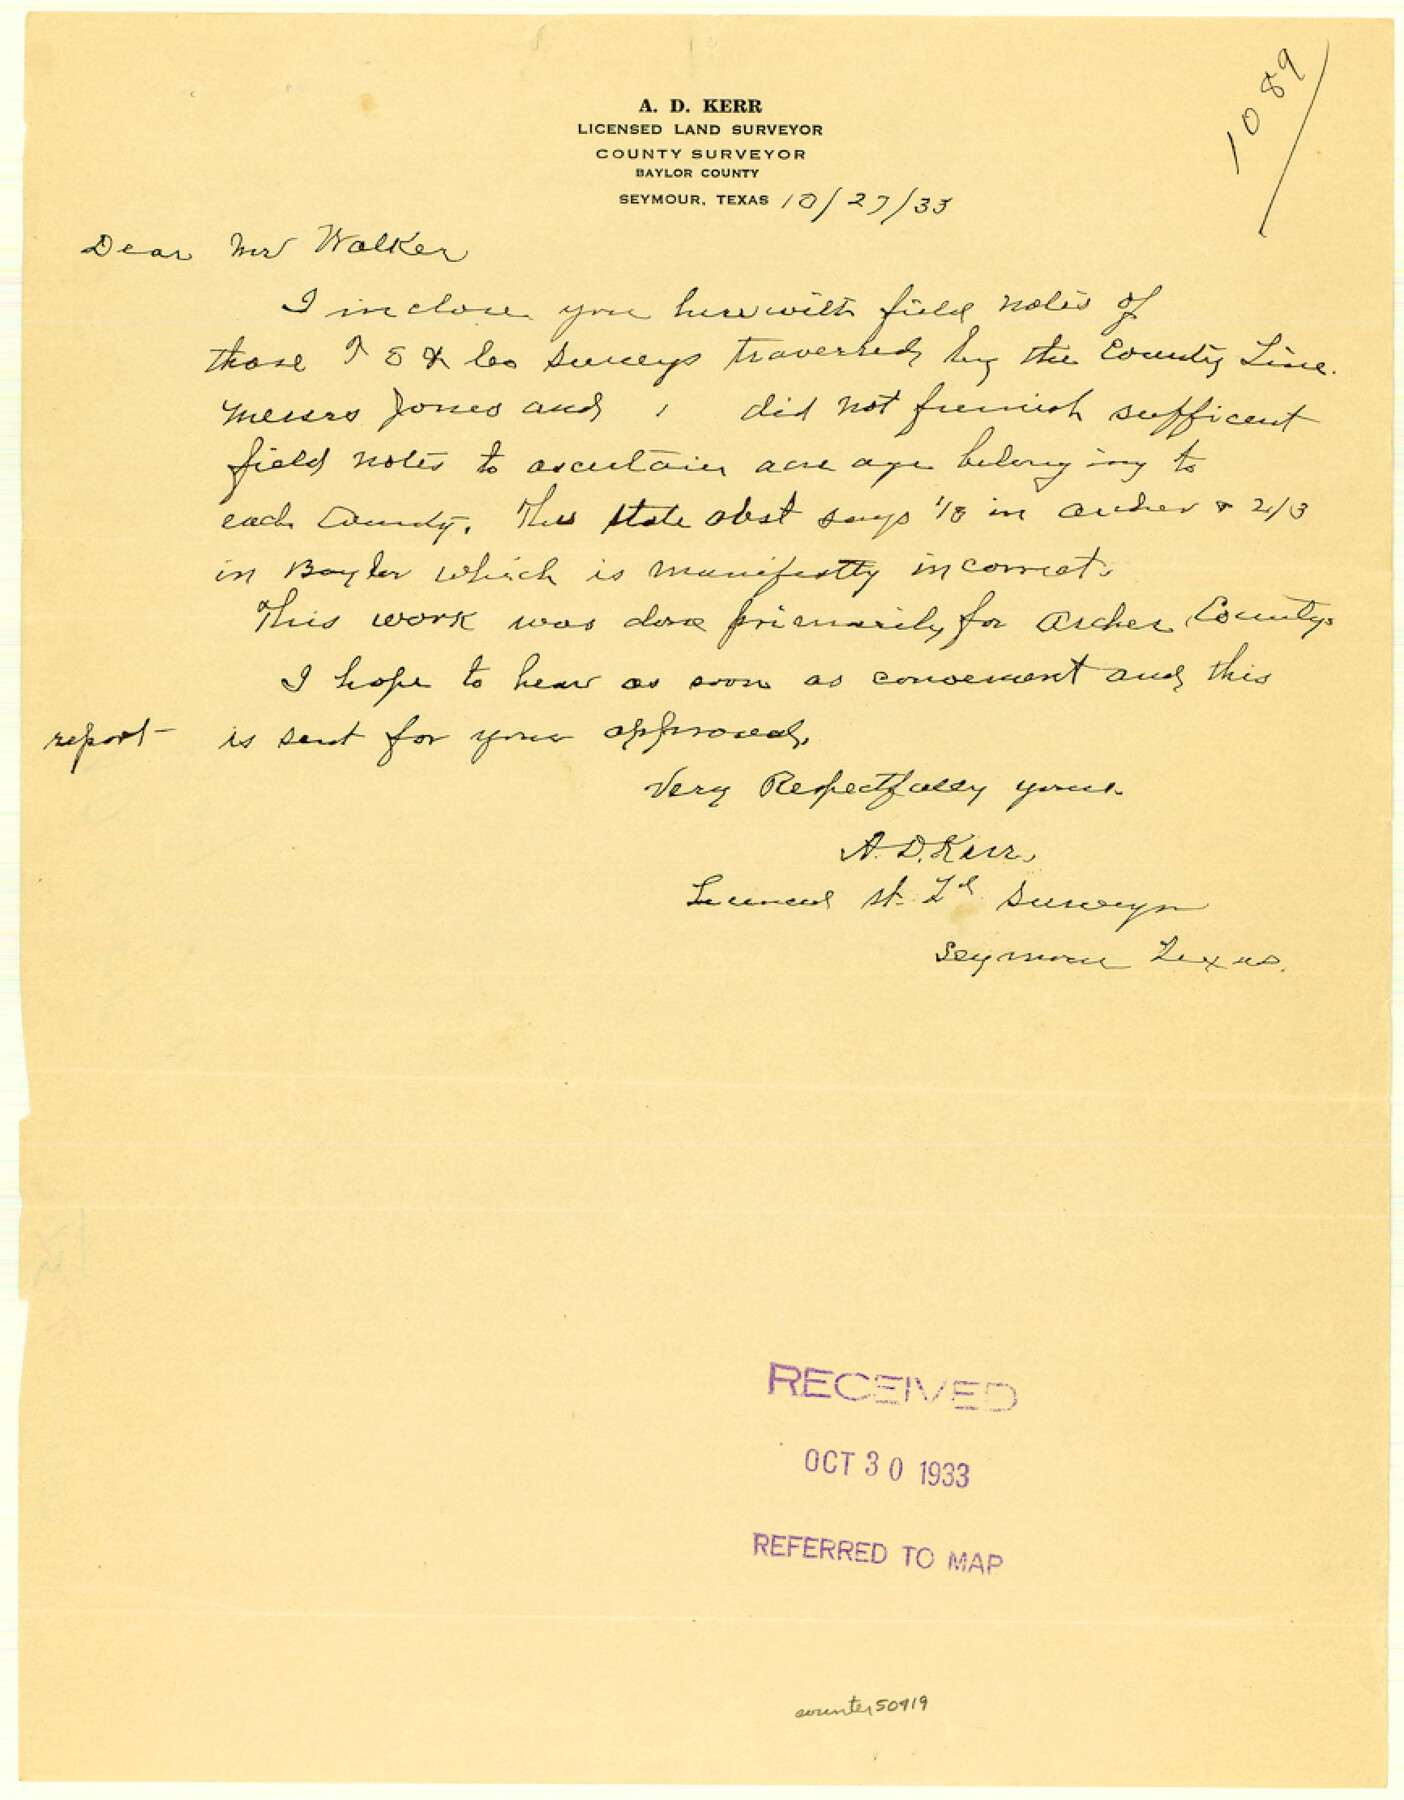 1089
A. D. KERR
LICENSED LAND SURVEYOR
COUNTY SURVEYOR
BAYLOR COUNTY
SEYMOUR, TEXAS 10/27/33
Dear Mr Walker
I inclose you herewith field notes of
those T E & L Co Surveys traversed by the County Line.
Messrs Jones and did not furnish sufficent
field notes to ascertain acreage belonging to
each County. The state abst says 1/3 in Archer & 2/3
in Baylor which is manifestly incorrect.
This work was done primarily for Archer County.
I hope to hear as soon as convenient and this
report is sent for your approval.
Very Respectfully yours
A. D. Kerr
Licensed St. Ld Surveyor
Seymour Texas.
RECEIVED
OCT 30 1933
REFERRED TO MAP
counter 50919